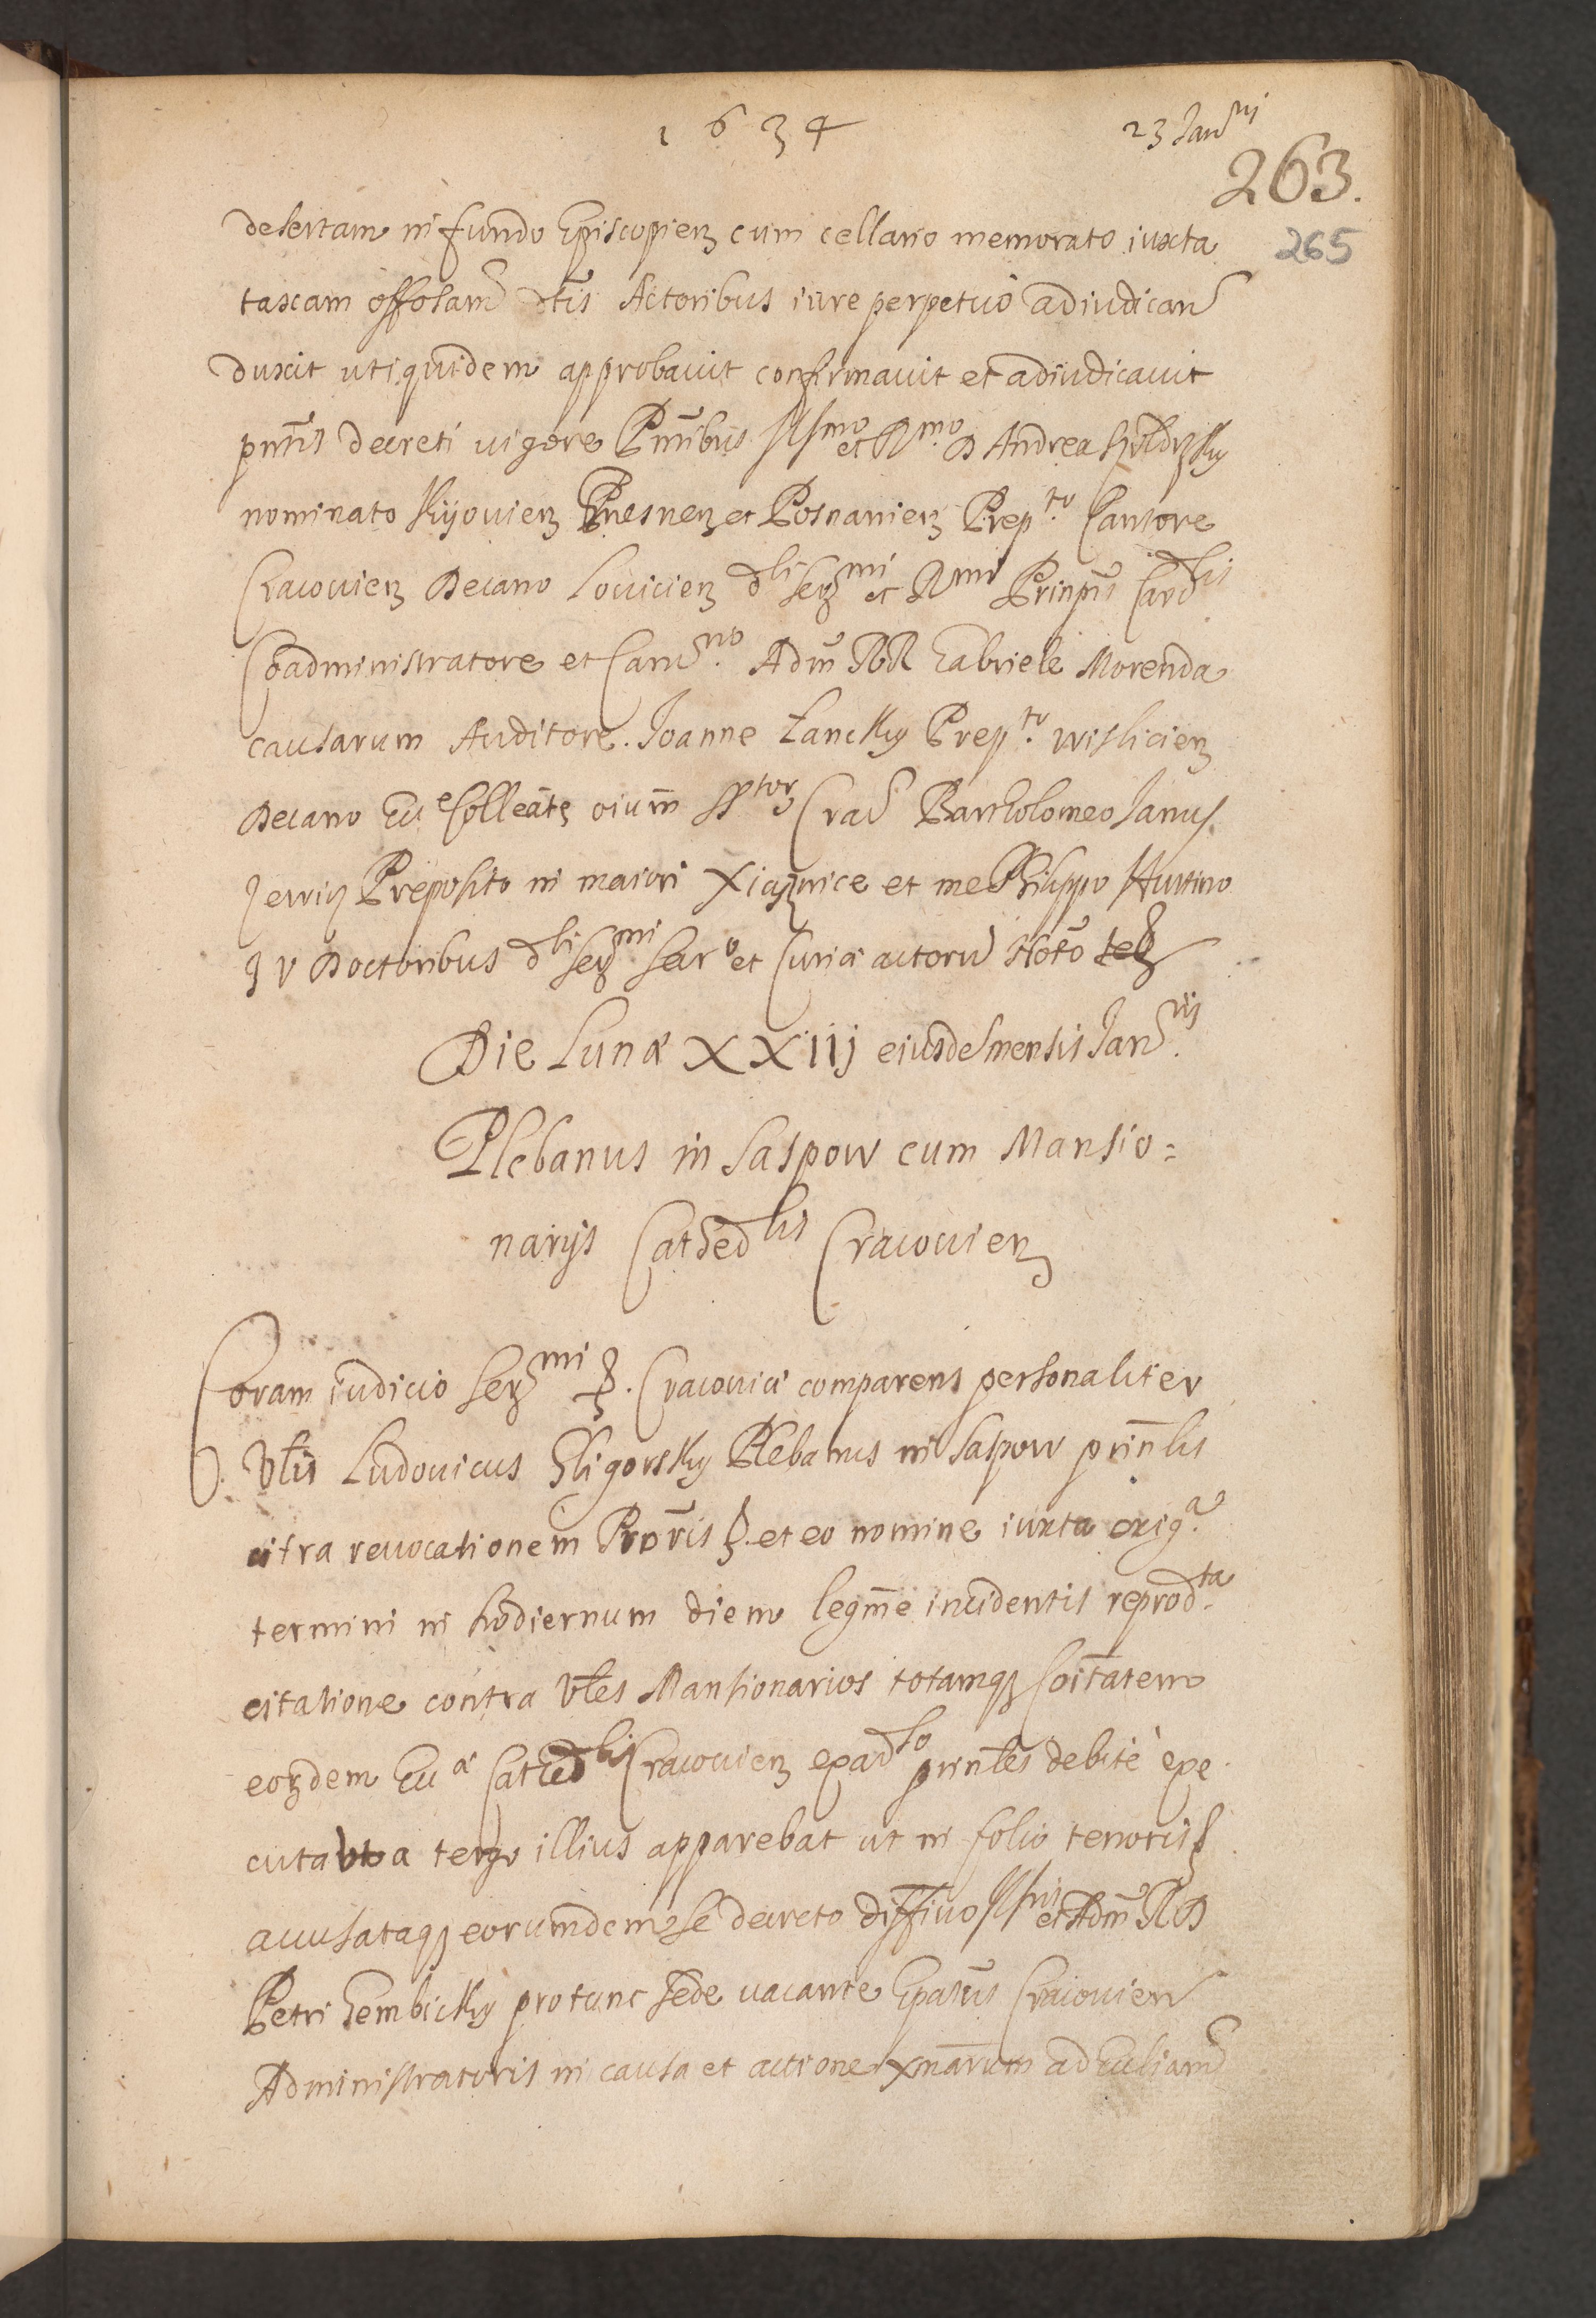 1634
23 Jan^rij
263.
265
desertam in fundo Episcopien cum cellario memorato iuxta
taxam offosam dtis Actoribus iure perpetuo adiudican
duxit uti quidem approbavit confirmavit et adiudicavit
pntis decreti vigore Pntibus Ill^mo et R^mo D Andrea Szoldrsky
nominato Kijovien Gnesnen et Posnanien Prep^to Cantore
Cracovien Decano Lovicien d^li Ser^mi et R^mi Prinpis Card^lis
Coadministratore et Canc^rio Adm RR Gabriele Morenda
causarum Auditore. Joanne Łancky Prep^to Wislicien
Decano Ecc^e Colleatę oium SS^tor Crac Bartholomeo Janus
Preposito in maiori Xiąznice et me Philippo Hurtino
J V Doctoribus d^li Ser^mi Secr^o et Curiæ actoru Noto
Die Lunæ XXIIj eiusdemensis Jan^rij
Plebanus in Saspow cum Mansio=
narijs Cathed^lis Cracovien
Coram iudicio Ser^mi P. Cracoviæ comparens personaliter
V. Vtlis Ludovicus Sligorsky Plebanus in Saspow prinlis
citra revocationem Procris et eo nomine iuxta exig^a
termini in hodiernum diem legme incidentis reprod^ta
citatione contra Vtles Mansionarios totamq Coitatem
eorzdem Ecc^æ Cathed^lis Cracovien ex ad^so prinles debite exe
cuta uti a tergo illius apparebat ut in folio tenoris
accusataq eorumdem se decreto diffivo Ill^ris et Adm R D
Petri Gembicky protunc Sede vacante Epatus Cracovien
Administratoris in causa et actione xmarum ad Eccliam